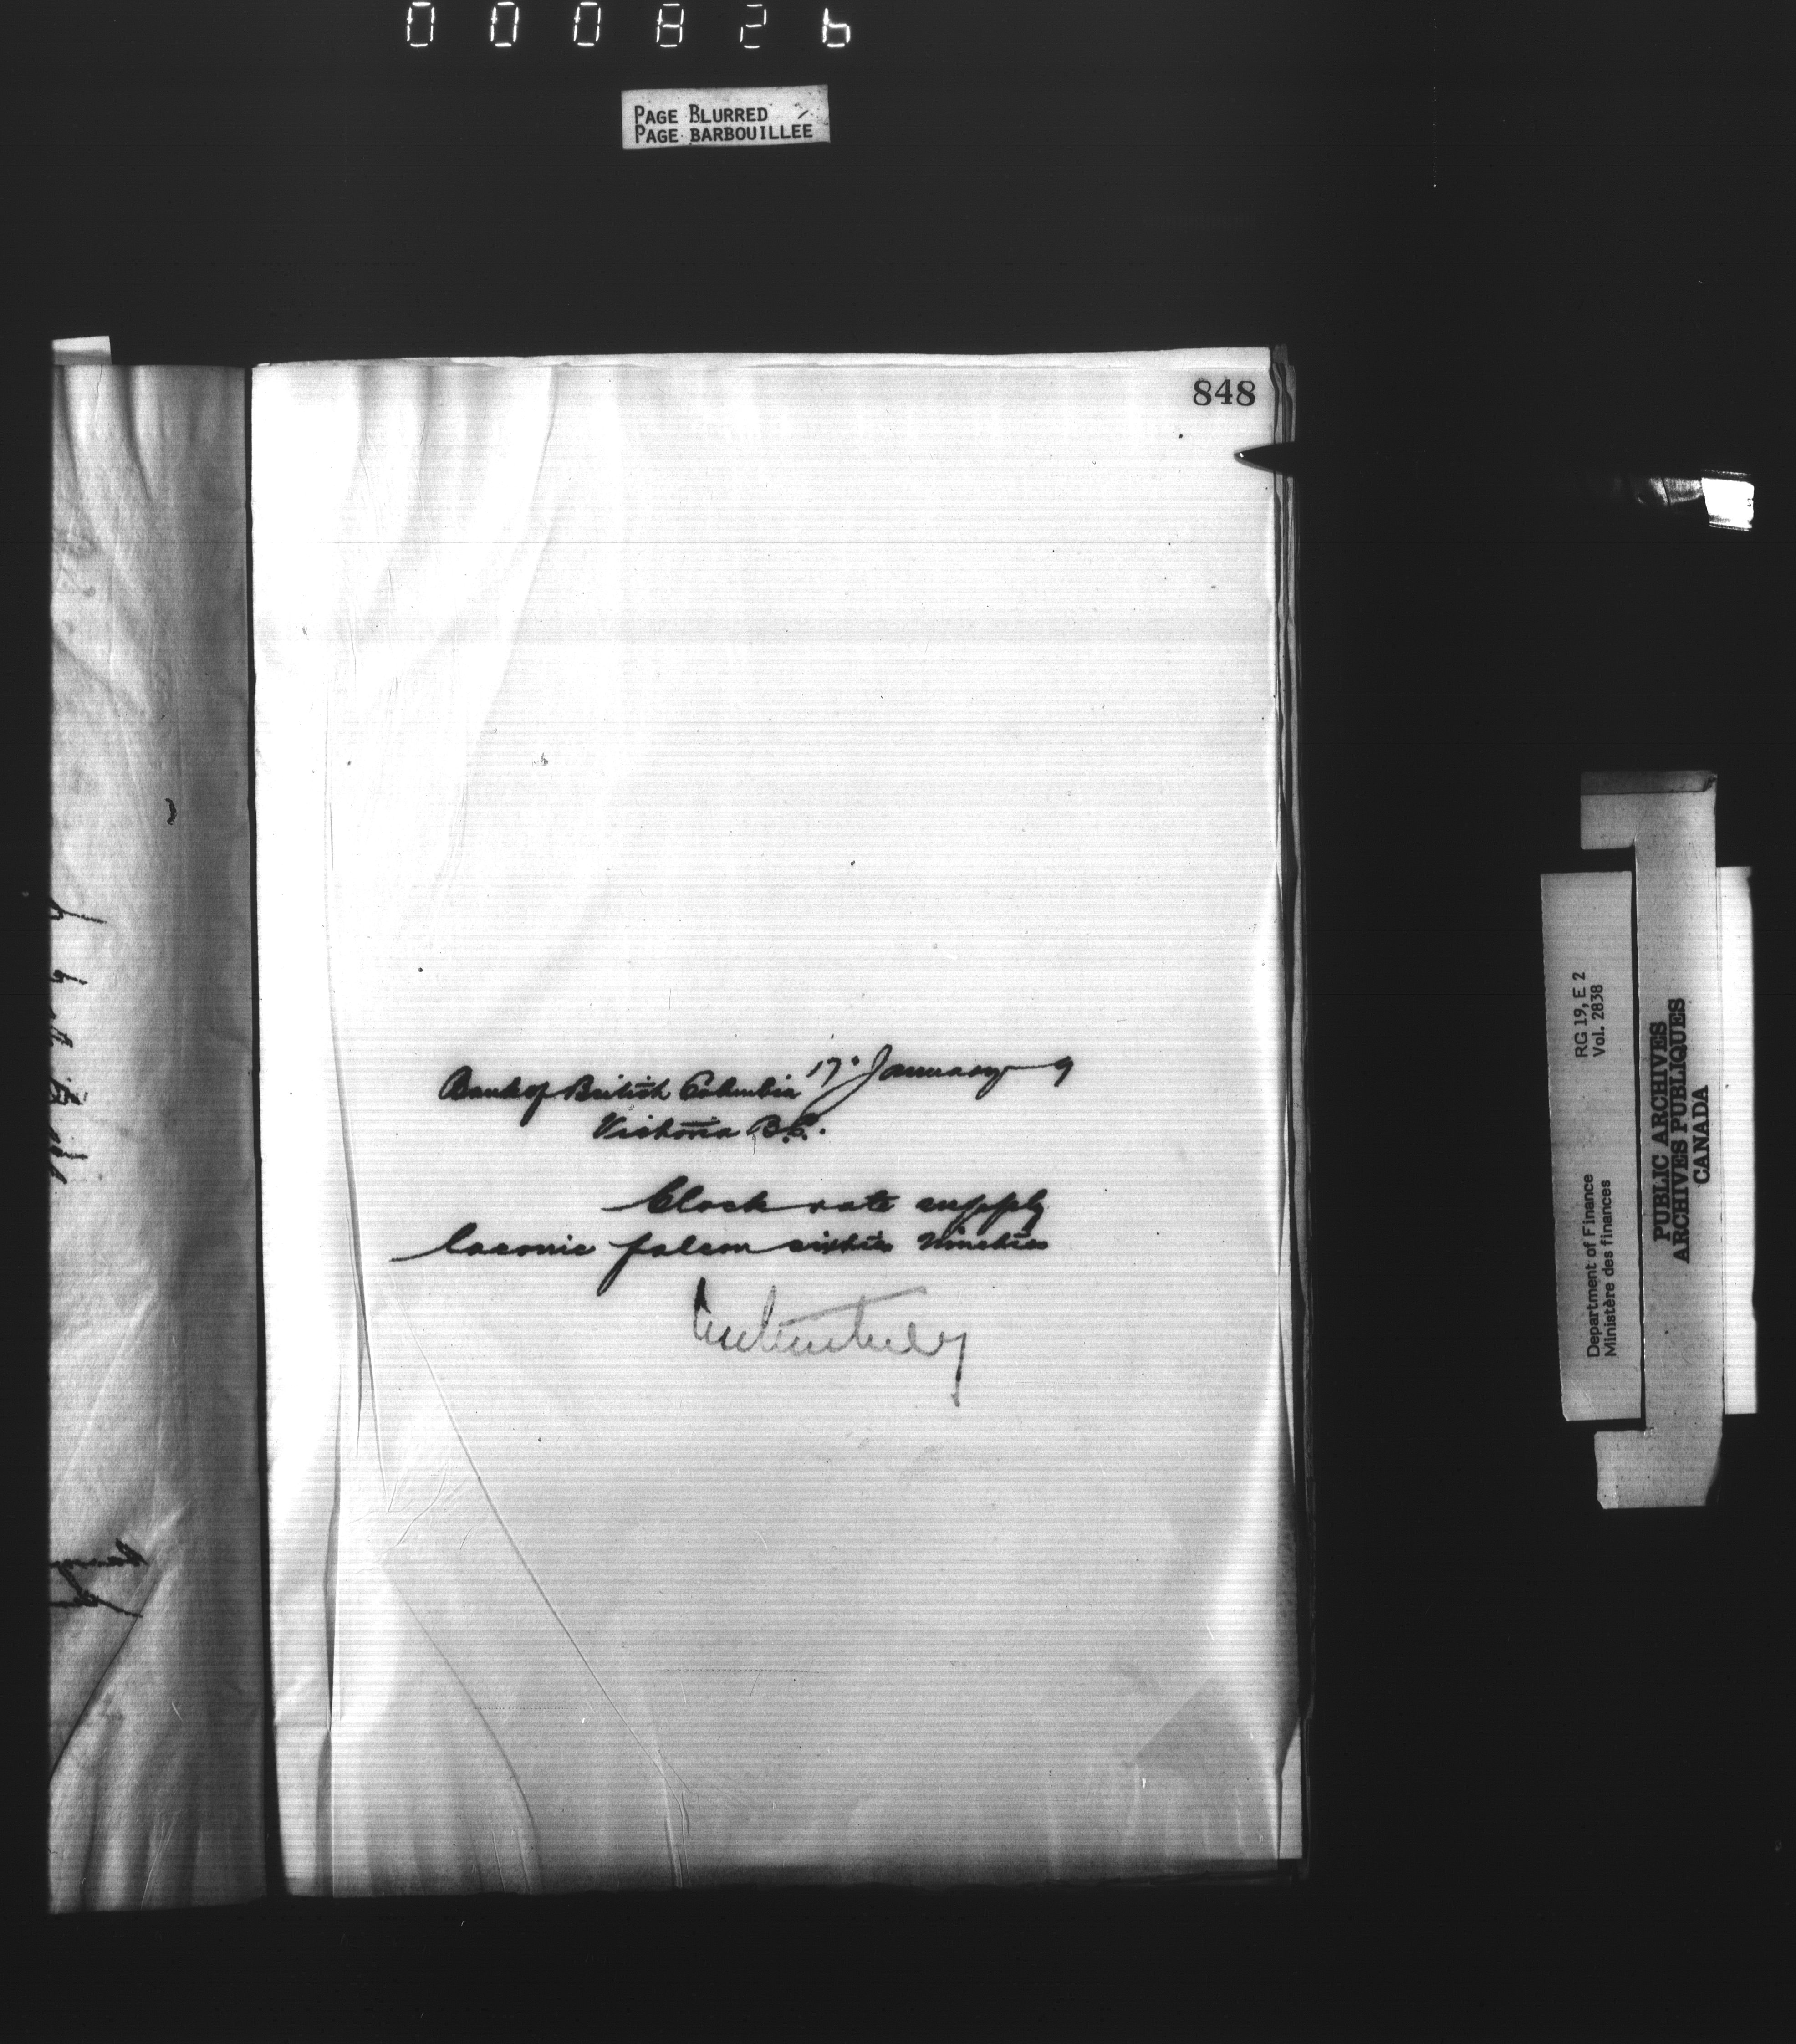 000826
PAGE BLURRED
PAGE BARBOUILLEE
848
17 January 9
Bank of British Columbia
Victoria B.C.
Clock rate supply
laconic falcon sixties nineties
RG 19, E 2
Vol. 2838
Department of Finance
Ministère des finances
PUBLIC ARCHIVES
ARCHIVES PUBLIQUES
CANADA